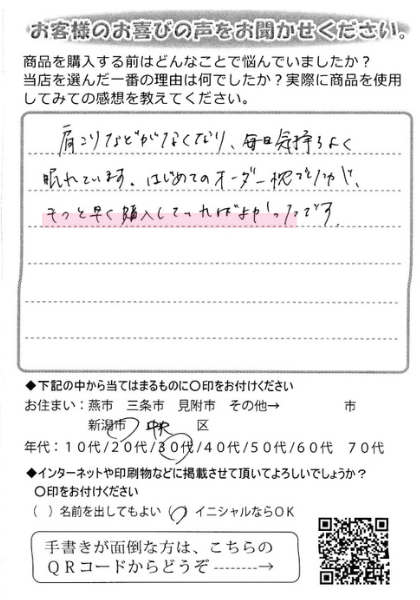 お客様のお喜びの声をお聞かせください。
商品を購入する前はどんなことで悩んでいましたか？
当店を選んだ一番の理由は何でしたか？実際に商品を使用
してみての感想を教えてください。
肩こりなどがなくなり、毎日気持ちよく
眠れています。はじめてのオーダー枕でしたが、
もっと早く購入していればよかったです。
◆下記の中から当てはまるものに〇印をお付けください
お住まい：燕市　三条市　見附市　その他→　　　　市
新潟市　中央　区
年代：１０代/２０代/３０代/４０代/５０代/６０代　７０代
◆インターネットや印刷物などに掲載させて頂いてよろしいでしょうか？
〇印をお付けください
（　）名前を出してもよい（　）イニシャルならＯＫ
手書きが面倒な方は、こちらの
ＱＲコードからどうぞ--------→